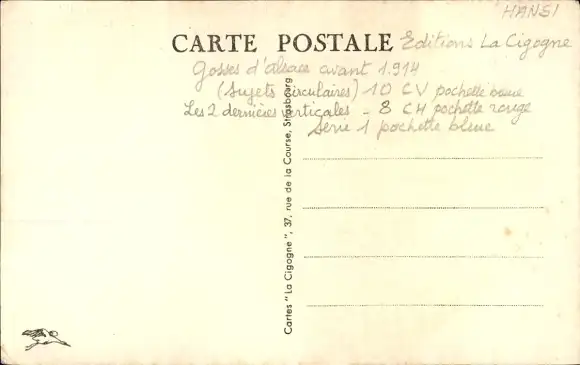 HANSI
CARTE POSTALE Editions La Cigogne
Gosses d'alsace avant 1.914
(Sujets circulaires) 10 CV pochette bleue
Les 2 dernières verticales - 8 CH pochette rouge
Série 1 pochette bleue
Cartes "La Cigogne", 37, rue de la Course, Strasbourg